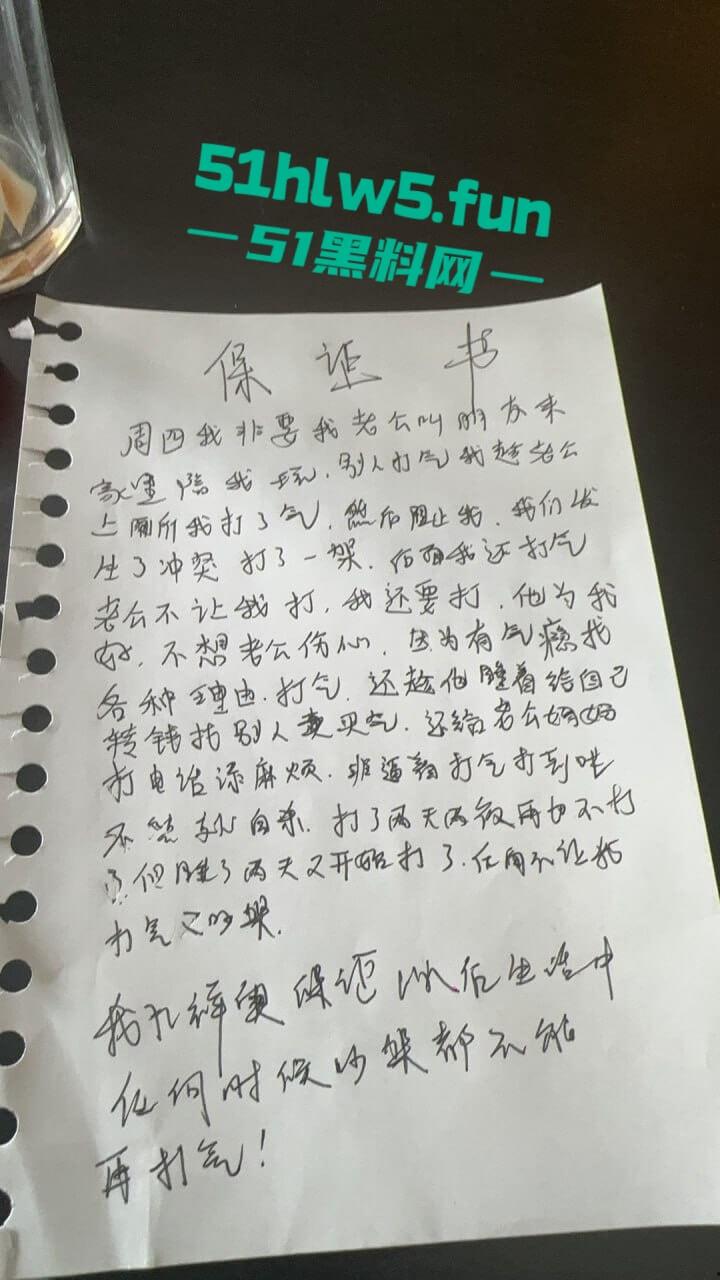 51hlw5.fun
51黑料网
保证书
周四我非要我老公叫朋友来
家里陪我玩,别人打气我趁老公
上厕所我打了气,然后阻止我,我们发
生了冲突打了一架,后面我还打气
老公不让我打,我还要打,他为我
好,不想老公伤心,因为有气瘾找
各种理由,打气,还趁他睡着给自己
转钱找别人买气,还给老公妈妈
打电话添麻烦,非逼着打气打到
就自杀,打了两天两夜再也不打
了但睡了两天又开始打了,不让我
打气又吵架.
我 保证以后生活中
任何时候吵架都不能
再打气!